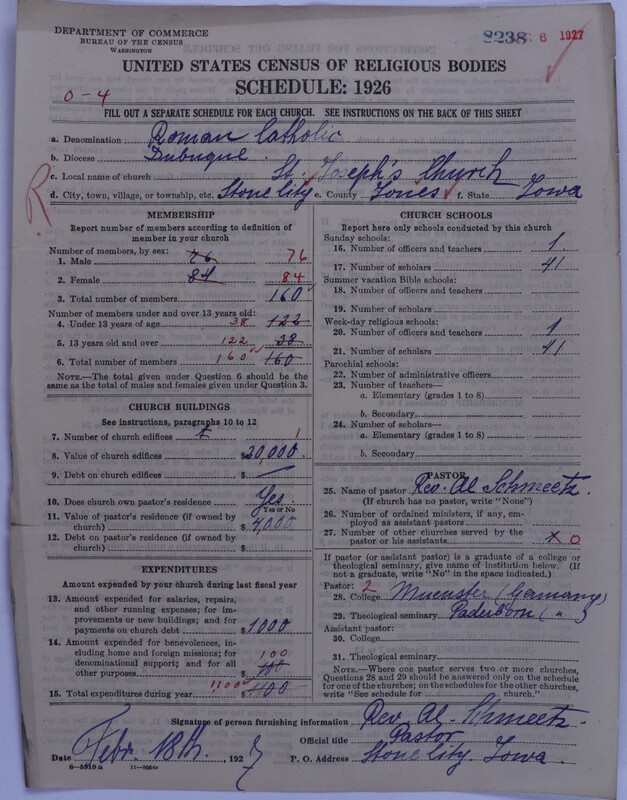 DEPARTMENT OF COMMERCE
BUREAU OF THE CENSUS
WASHINGTON
8238 6 1927
UNITED STATES CENSUS OF RELIGIOUS BODIES
SCHEDULE: 1926
0-4
FILL OUT A SEPARATE SCHEDULE FOR EACH CHURCH. SEE INSTRUCTIONS ON THE BACK OF THIS SHEET
a. Denomination Roman Catholic
b. Diocese Dubuque.
c. Local name of church St. Joseph's Church
R
d. City, town, village, or township, etc. Stone City e. County Jones f. State Iowa
MEMBERSHIP
Report number of members according to definition of
member in your church
Number of members, by sex:
1. Male 76 76
2. Female 84 84
3. Total number of members 160
Number of members under and over 13 years old:
4. Under 13 years of age 38 122
5. 13 years old and over 122 38
6. Total number of members 160 160
NOTE.—The total given under Question 6 should be
same as the total of males and females given under Question 3.
CHURCH BUILDINGS
See instructions, paragraphs 10 to 12
7. Number of church edifices 1
8. Value of church edifices $20,000.
9. Debt on church edifices $
10. Does church own pastor's residence Yes.
Yes or No
11. Value of pastor's residence (if owned by
church) $4,000
12. Debt on pastor's residence (if owned by
church) $
EXPENDITURES
Amount expended by your church during last fiscal year
13. Amount expended for salaries, repairs,
and other running expenses; for im-
provements or new buildings; and for
payments on church debt $1000
14. Amount expended for benevolences, in-
cluding home and foreign missions; for
denominational support; and for all
other purposes $ 100
15. Total expenditures during year 1100 $1100
CHURCH SCHOOLS
Report here only schools conducted by this church
Sunday schools:
16. Number of officers and teachers 1.
17. Number of scholars 41
Summer vacation Bible schools:
18. Number of officers and teachers
19. Number of scholars
Week-day religious schools:
20. Number of officers and teachers 1
21. Number of scholars 41
Parochial schools:
22. Number of administrative officers
23. Number of teachers—
a. Elementary (grades 1 to 8)
b. Secondary
24. Number of scholars—
a. Elementary (grades 1 to 8)
b. Secondary
PASTOR
25. Name of pastor Rev. Al Schmeetz.
(If church has no pastor, write "None")
26. Number of ordained ministers, if any, em-
ployed as assistant pastors
27. Number of other churches served by the
pastor or his assistants. x 0
If pastor (or assistant pastor) is a graduate of a college or
theological seminary, give name of institution below. (If
not a graduate, write "No" in the space indicated.)
Pastor: 2
28. College Muenster (Germany)
29. Theological seminary Paderborn ( " )
Assistant pastor:
30. College
31. Theological seminary
NOTE.—Where one pastor serves two or more churches,
Questions 28 and 29 should be answered only on the schedule
for one of the churches; on the schedules for the other churches,
write "See schedule for church."
Signature of person furnishing information Rev. Al. Schmeetz.
Official title Pastor
Date Febr. 18th. 1927 P. O. Address Stone City. Iowa.
8—5319a 11—9064a